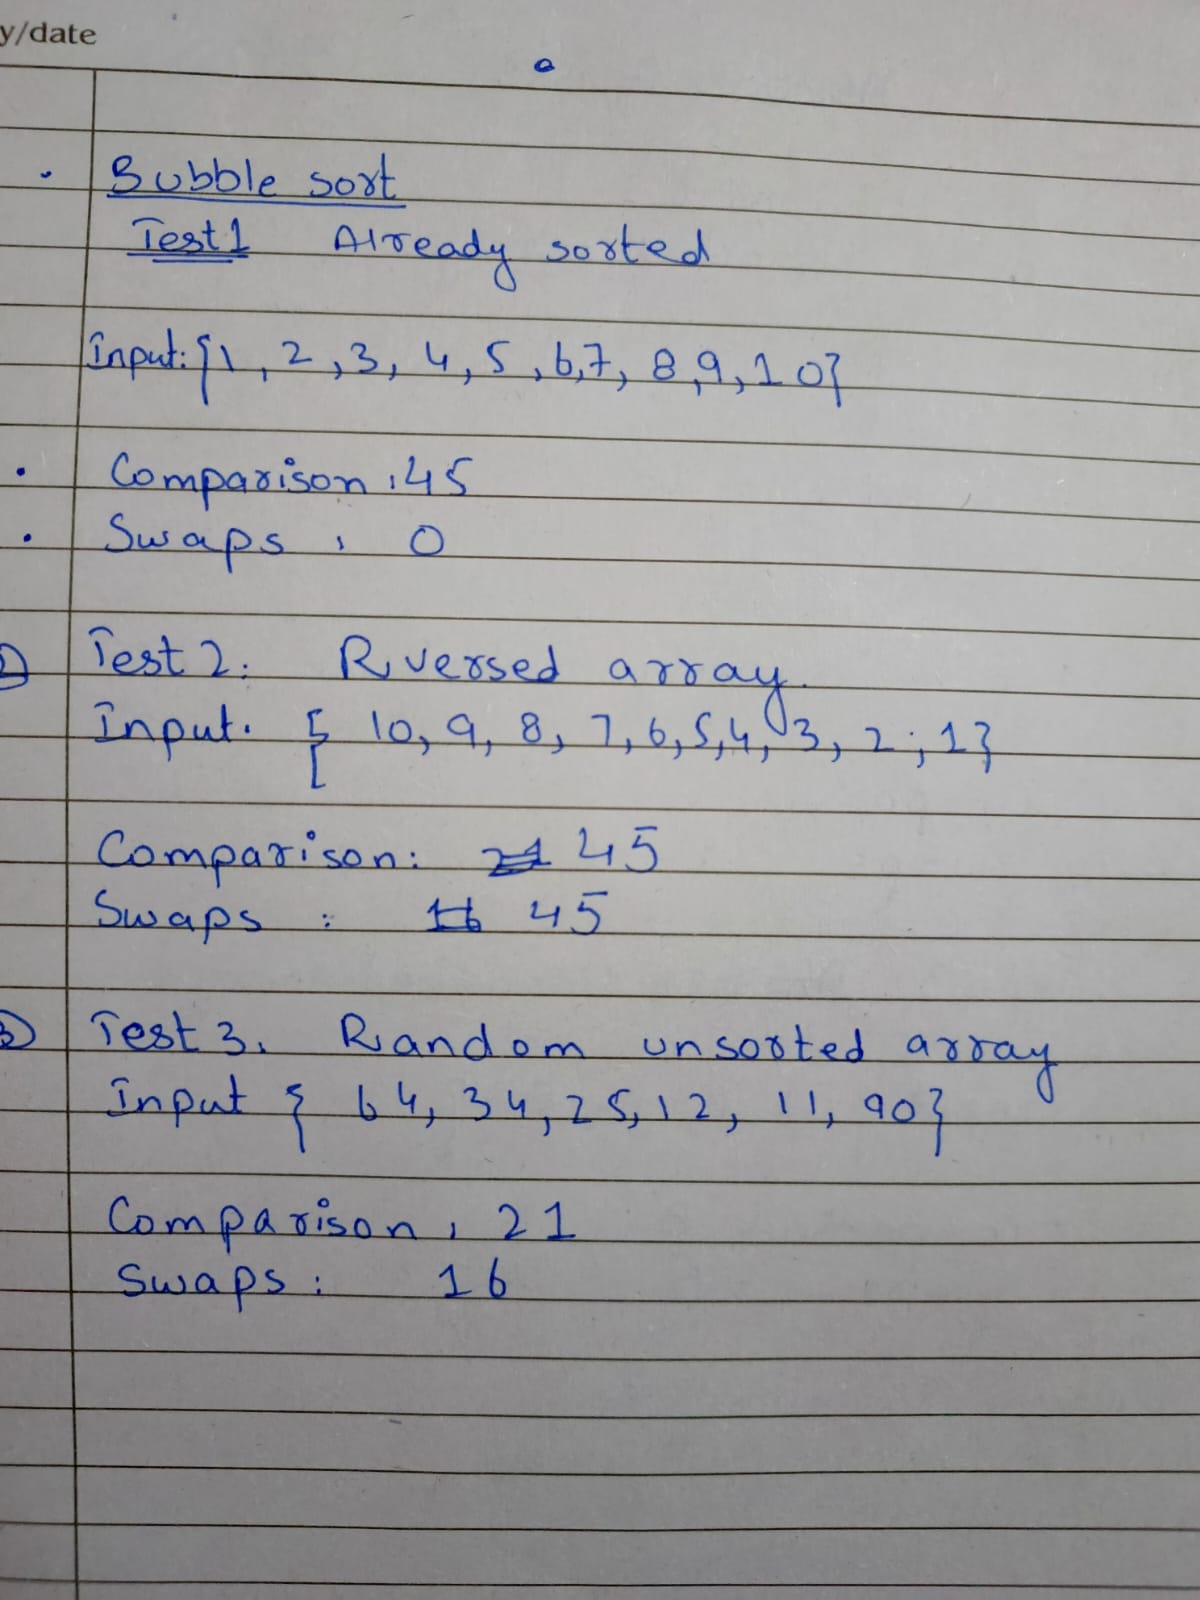 y/date
Bubble sort
Test 1 Already sorted
Input: {1, 2, 3, 4, 5, 6, 7, 8, 9, 10}
Comparison : 45
Swaps : 0
Test 2: Rversed array.
Input. { 10, 9, 8, 7, 6, 5, 4, 3, 2, 1}
Comparison: 21 45
Swaps : 16 45
3) Test 3. Random unsorted array
Input { 64, 34, 25, 12, 11, 90}
Comparison : 21
Swaps : 16